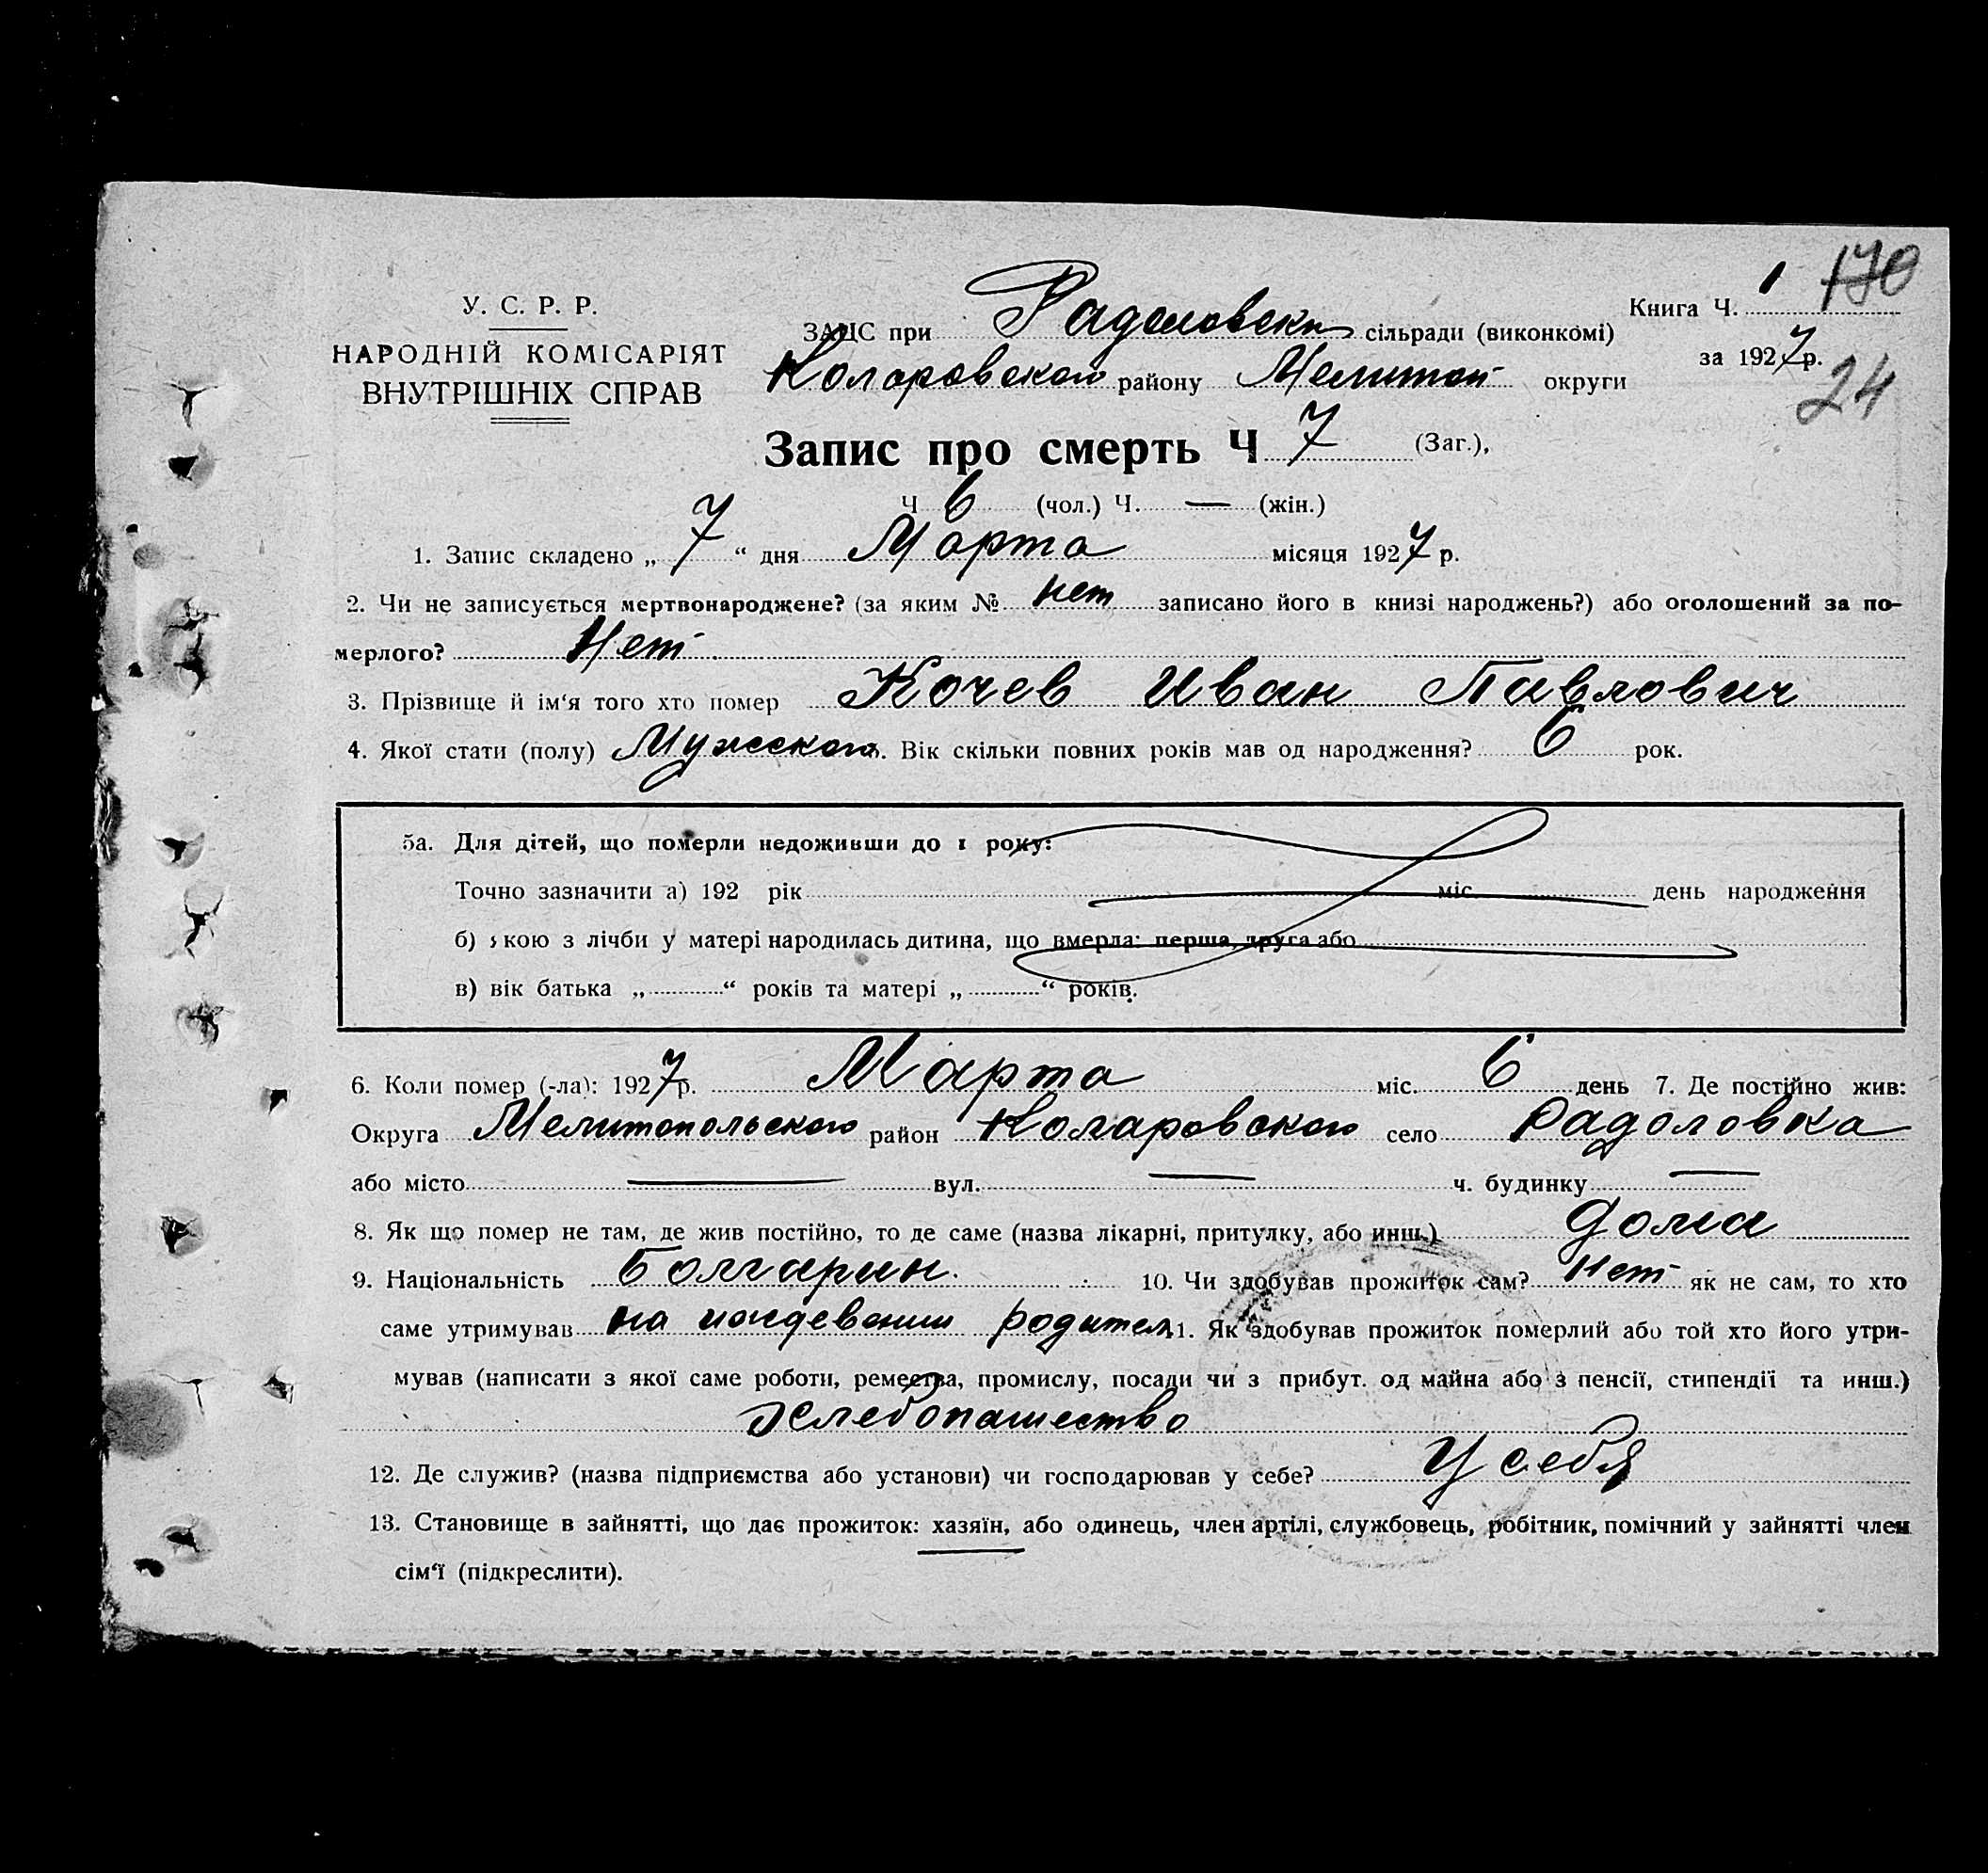 У. С. Р. Р.
НАРОДНІЙ КОМІСАРІЯТ
ВНУТРІШНІХ СПРАВ
Книга Ч. 1 170
за 1927 р.
24
ЗАЦС при Радоловски сільради (виконкомі)
Коларовского району Мелитоп округи
Запис про смерть Ч 7 (Заг.),
Ч 6 (чол.) Ч. — (жін.)
1. Запис складено „ 7 “ дня Марта місяця 1927 р.
2. Чи не записується мертвонароджене? (за яким № нет записано його в книзі народжень?) або оголошений за по-
мерлого? Нет.
3. Прізвище й ім‘я того хто помер Кочев Иван Павлович
4. Якої стати (полу) Мужеского. Вік скільки повних років мав од народження? 6 рок.
5а. Для дітей, що померли недоживши до 1 року:
Точно зазначити а) 192 рік міс. день народження
б) якою з лічби у матері народилась дитина, що вмерла: перша, друга або
в) вік батька „ “ років та матері „ “ років.
6. Коли помер (-ла): 1927 р. Марта міс. 6 день 7. Де постійно жив:
Округа Мелитопольского район Коларовского село Радоловка
або місто — вул. — ч. будинку —
8. Як що помер не там, де жив постійно, то де саме (назва лікарні, притулку, або инш.) дома
9. Національність Болгарин. 10. Чи здобував прожиток сам? Нет як не сам, то хто
саме утримував на иждевении родител 11. Як здобував прожиток померлий або той хто його утри-
мував (написати з якої саме роботи, ремества, промислу, посади чи з прибут. од майна або з пенсії, стипендії та инш.)
Хлебопашество
12. Де служив? (назва підприємства або установи) чи господарював у себе? У себя
13. Становище в зайнятті, що дає прожиток: хазяїн, або одинець, член артілі, службовець, робітник, помічний у зайнятті член
сім‘ї (підкреслити).